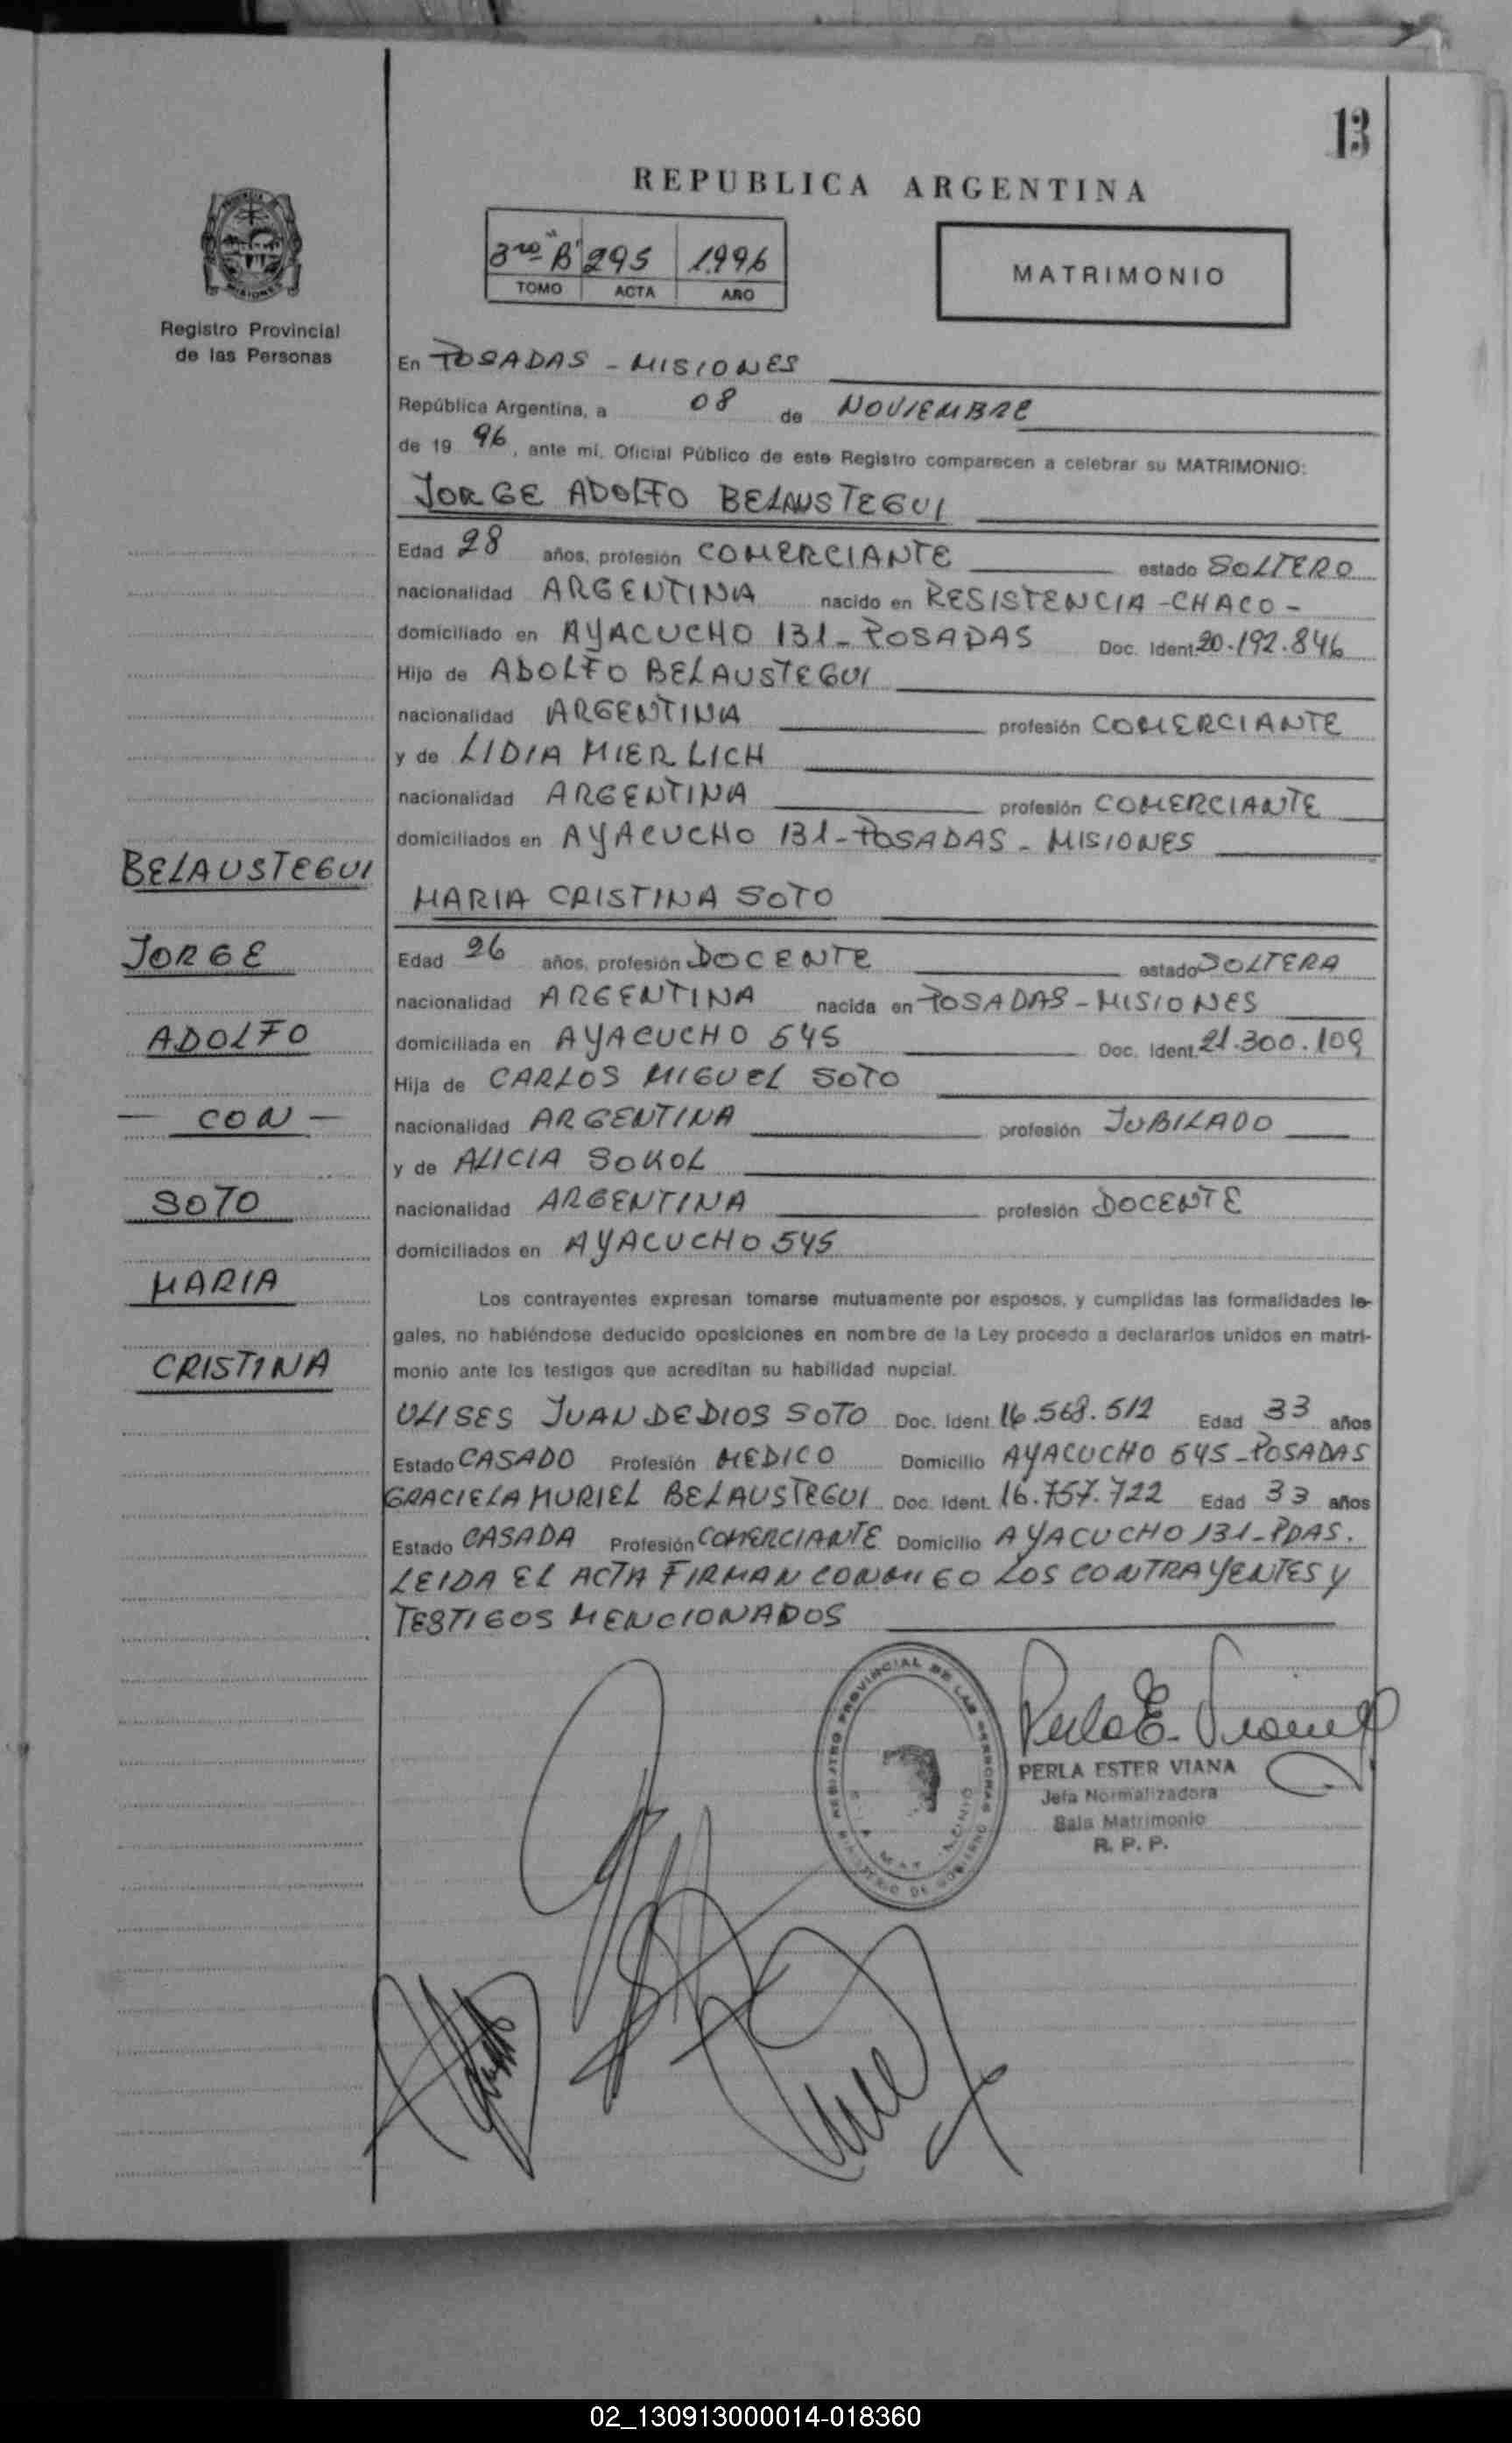 13
REPUBLICA ARGENTINA
3ro "B" 295 1996
TOMO ACTA AÑO
MATRIMONIO
Registro Provincial
de las Personas
En POSADAS - MISIONES
República Argentina, a 08 de NOVIEMBRE
de 19 96, ante mí, Oficial Público de este Registro comparecen a celebrar su MATRIMONIO:
JORGE ADOLFO BELAUSTEGUI
Edad 28 años, profesión COMERCIANTE estado SOLTERO
nacionalidad ARGENTINA nacido en RESISTENCIA - CHACO -
domiciliado en AYACUCHO 131 - POSADAS Doc. Ident. 20.192.846
Hijo de ADOLFO BELAUSTEGUI
nacionalidad ARGENTINA profesión COMERCIANTE
y de LIDIA MIERLICH
nacionalidad ARGENTINA profesión COMERCIANTE
domiciliados en AYACUCHO 131 - POSADAS - MISIONES
MARIA CRISTINA SOTO
Edad 26 años, profesión DOCENTE estado SOLTERA
nacionalidad ARGENTINA nacida en POSADAS - MISIONES
domiciliada en AYACUCHO 545 Doc. Ident. 21.300.109
Hija de CARLOS MIGUEL SOTO
nacionalidad ARGENTINA profesión JUBILADO
y de ALICIA SOKOL
nacionalidad ARGENTINA profesión DOCENTE
domiciliados en AYACUCHO 545
BELAUSTEGUI
JORGE
ADOLFO
- CON -
SOTO
MARIA
CRISTINA
Los contrayentes expresan tomarse mutuamente por esposos, y cumplidas las formalidades le-
gales, no habiéndose deducido oposiciones en nombre de la Ley procedo a declararlos unidos en matri-
monio ante los testigos que acreditan su habilidad nupcial.
ULISES JUAN DE DIOS SOTO Doc. Ident. 16.568.512 Edad 33 años
Estado CASADO Profesión MEDICO Domicilio AYACUCHO 545 - POSADAS
GRACIELA MURIEL BELAUSTEGUI Doc. Ident. 16.757.722 Edad 33 años
Estado CASADA Profesión COMERCIANTE Domicilio AYACUCHO 131 - PDAS.
LEIDA EL ACTA FIRMAN CONMIGO LOS CONTRAYENTES Y
TESTIGOS MENCIONADOS
REGISTRO PROVINCIAL DE LAS PERSONAS
MINISTERIO DE GOBIERNO
Perla E. Viana
PERLA ESTER VIANA
Jefa Normalizadora
Sala Matrimonio
R. P. P.
02_130913000014-018360